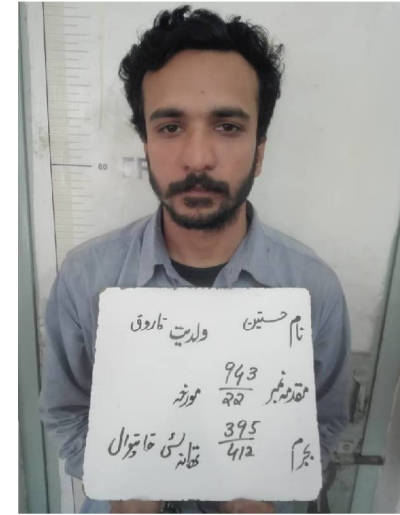 60
نام حسنین ولدیت فاروق
مقدمہ نمبر 943/22 مورخہ
بجرم 395/412 تھانہ سٹی خانیوال